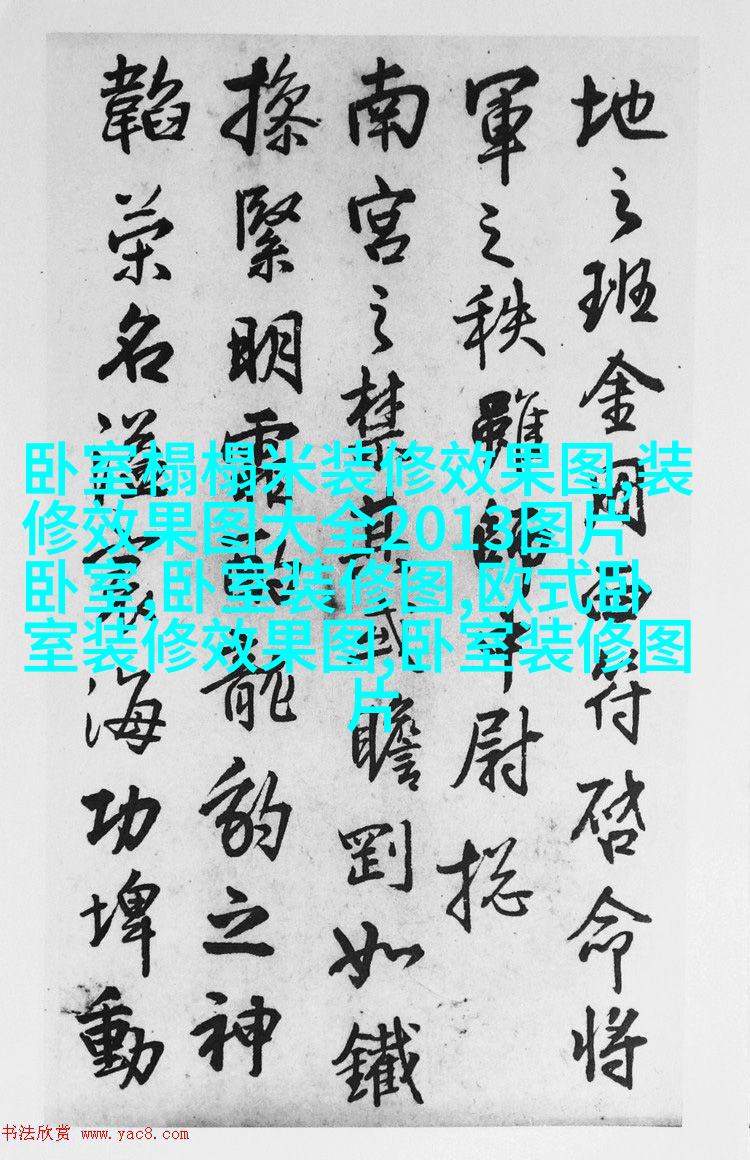 地之班金西符啓命將
軍之秩雖尉揔
南宮之禁瞻剛如鐵
操緊明龍豹之神
韜榮名溢海功埤動
卧室榻榻米装修效果图,装
修效果图大全2013图片
卧室,卧室装修图,欧式卧
室装修效果图,卧室装修图
片
书法欣赏 www.yac8.com